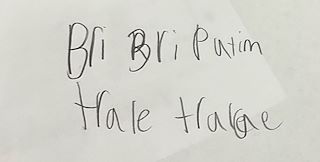 Bri Bri Patim
trale tralae